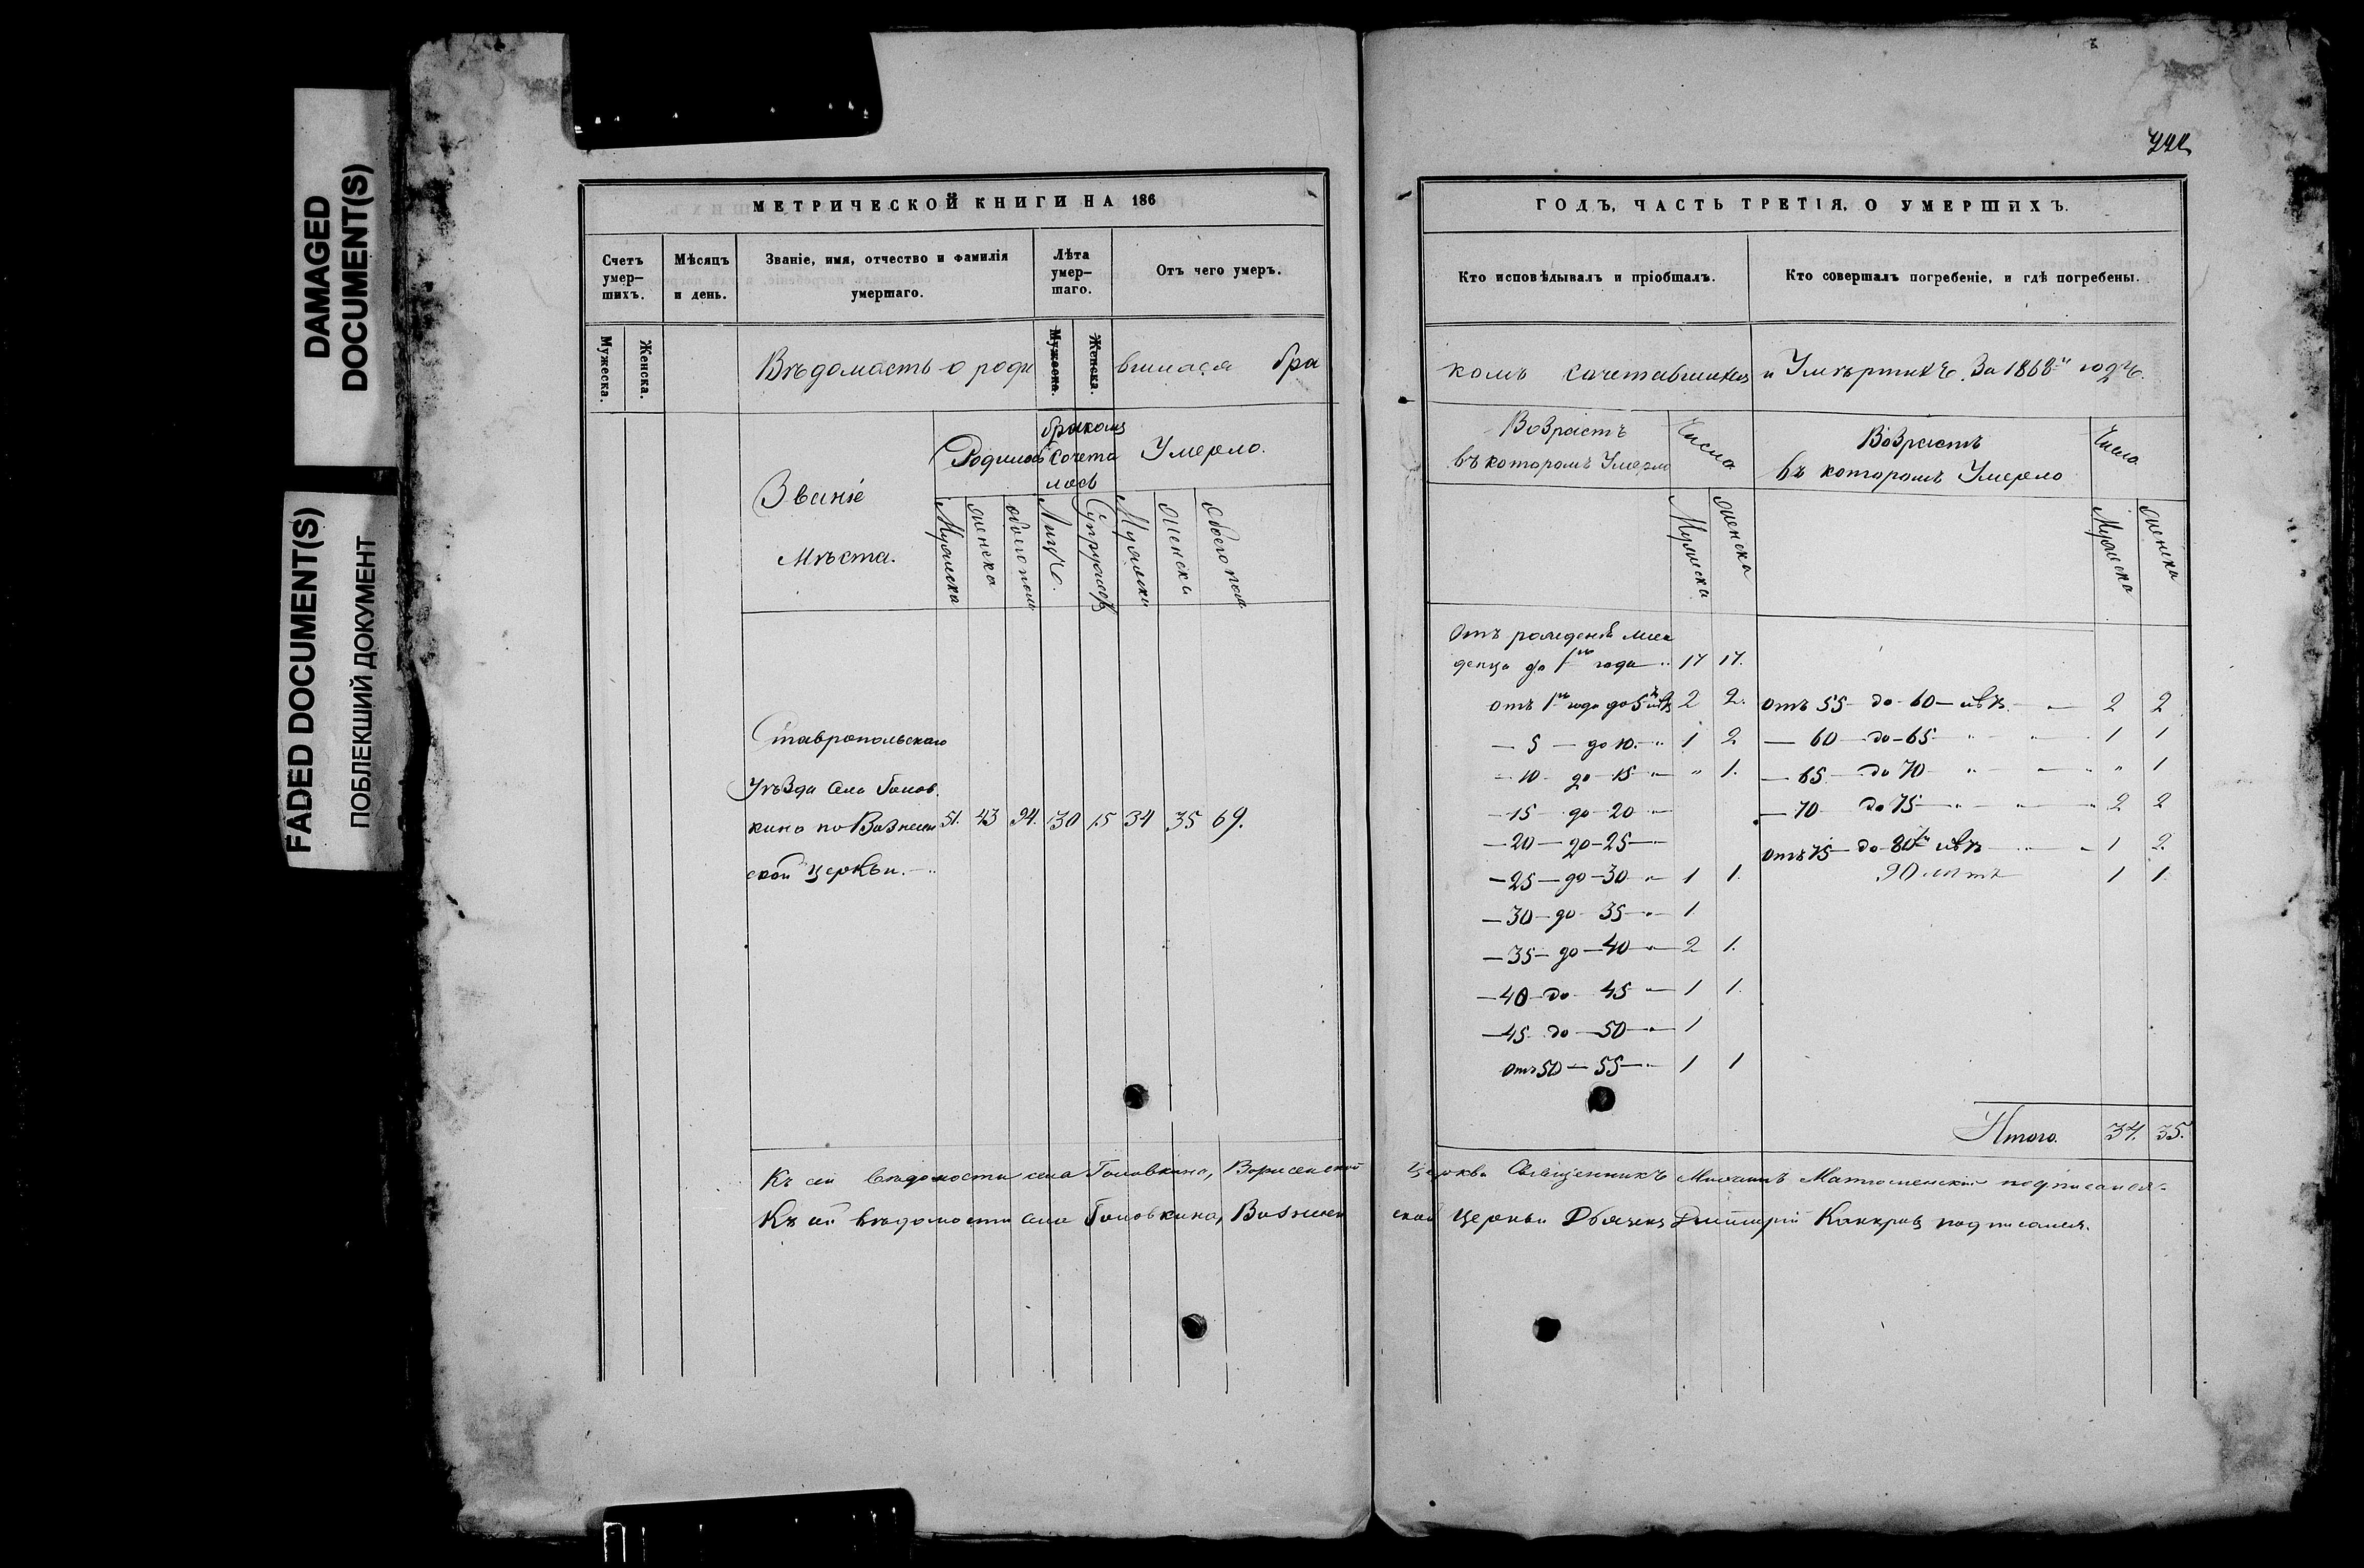 DAMAGED
DOCUMENT(S)
FADED DOCUMENT(S)
ПОБЛЕКШИЙ ДОКУМЕНТ
МЕТРИЧЕСКОЙ КНИГИ НА 186
Счетъ умер–шихъ.
Мѣсяцъ и день.
Званіе, имя, отчество и фамилія умершаго.
Лѣта умер–шаго.
Отъ чего умеръ.
Мужеска.
Женска.
Мужеска.
Женска.
Вѣдомость о роди вшихся бра
Званіе
Мѣста.
Родилось
бракомъ
сочета
лось
Умерло.
Мужеска
женска
обоего пола
Лицъ.
Супружес
Мужеска
женска
обоего пола
Ставропольскаго
Уѣзда села Голов
кина по Вознесен 51. 43 94. 30 15 34 35 69.
ской церкви.
Къ сей вѣдомости села Головкина,
Къ сей вѣдомости села Головкина, Вознесен
ГОДЪ, ЧАСТЬ ТРЕТІЯ, О УМЕРШИХЪ.
Кто исповѣдывалъ и пріобщалъ.
Кто совершалъ погребеніе, и гдѣ погребены.
комъ сочетавшихся и Умѣршихъ. За 1868й годъ.
Возрастъ
въ которомъ Умерло
Число
Мужеска
женска
Возрастъ
въ которомъ Умерло
Число
Мужеска
женска
Отъ рожденія мла
денца до 1го года 17 17.
отъ 1го года до 5 лѣтъ 2 2.
— 5 — до 10. — 1 2
— 10 — до 15 — „ 1.
— 15 — до 20 —
— 20 — до 25 —
— 25 — до 30 — 1 1.
— 30 — до 35 — 1
— 35 — до 40 — 2 1.
— 40 — до 45 — 1 1.
— 45 до 50 — 1
отъ 50 — 55 — 1 1
отъ 55 до 60 лѣтъ 2 2
— 60 до 65 1 1
— 65 до 70 „ 1
— 70 до 75 2 2
отъ 75 до 80ти лѣтъ 1 2.
90 лѣтъ 1 1.
Итого. 34. 35.
церкви Священникъ подписался.
ской Церкви Дьячекъ Димитрій подписался.